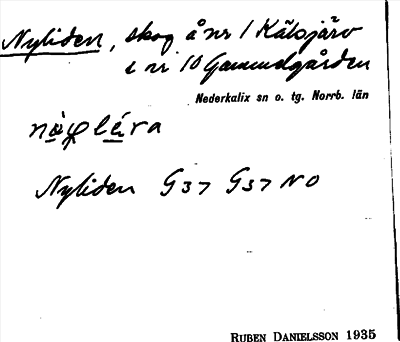 Nyliden, skog å nr 1 Kälsjärv
i nr 10 Gammelgården
Nederkalix sn o. tg. Norrb. län
Nyliden G37 G37 NO
RUBEN DANIELSSON 1935